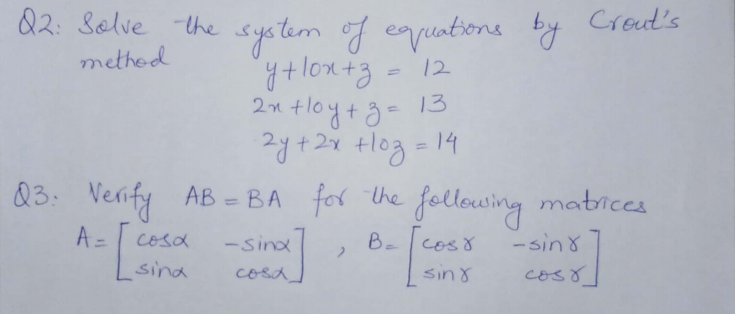 Q2: Solve the system of equations by Crout's
method
y+10x+z = 12
2x+10y+z = 13
2y+2x+10z = 14
Q3: Verify AB = BA for the following matrices
A = [cosα -sinα], B = [cosγ -sinγ]
[sinα cosα] [sinγ cosγ]